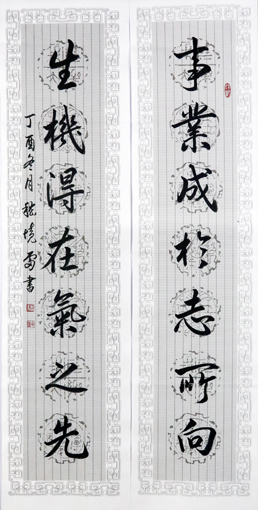 事業成於志所向
生機得在氣之先
丁酉冬月 書